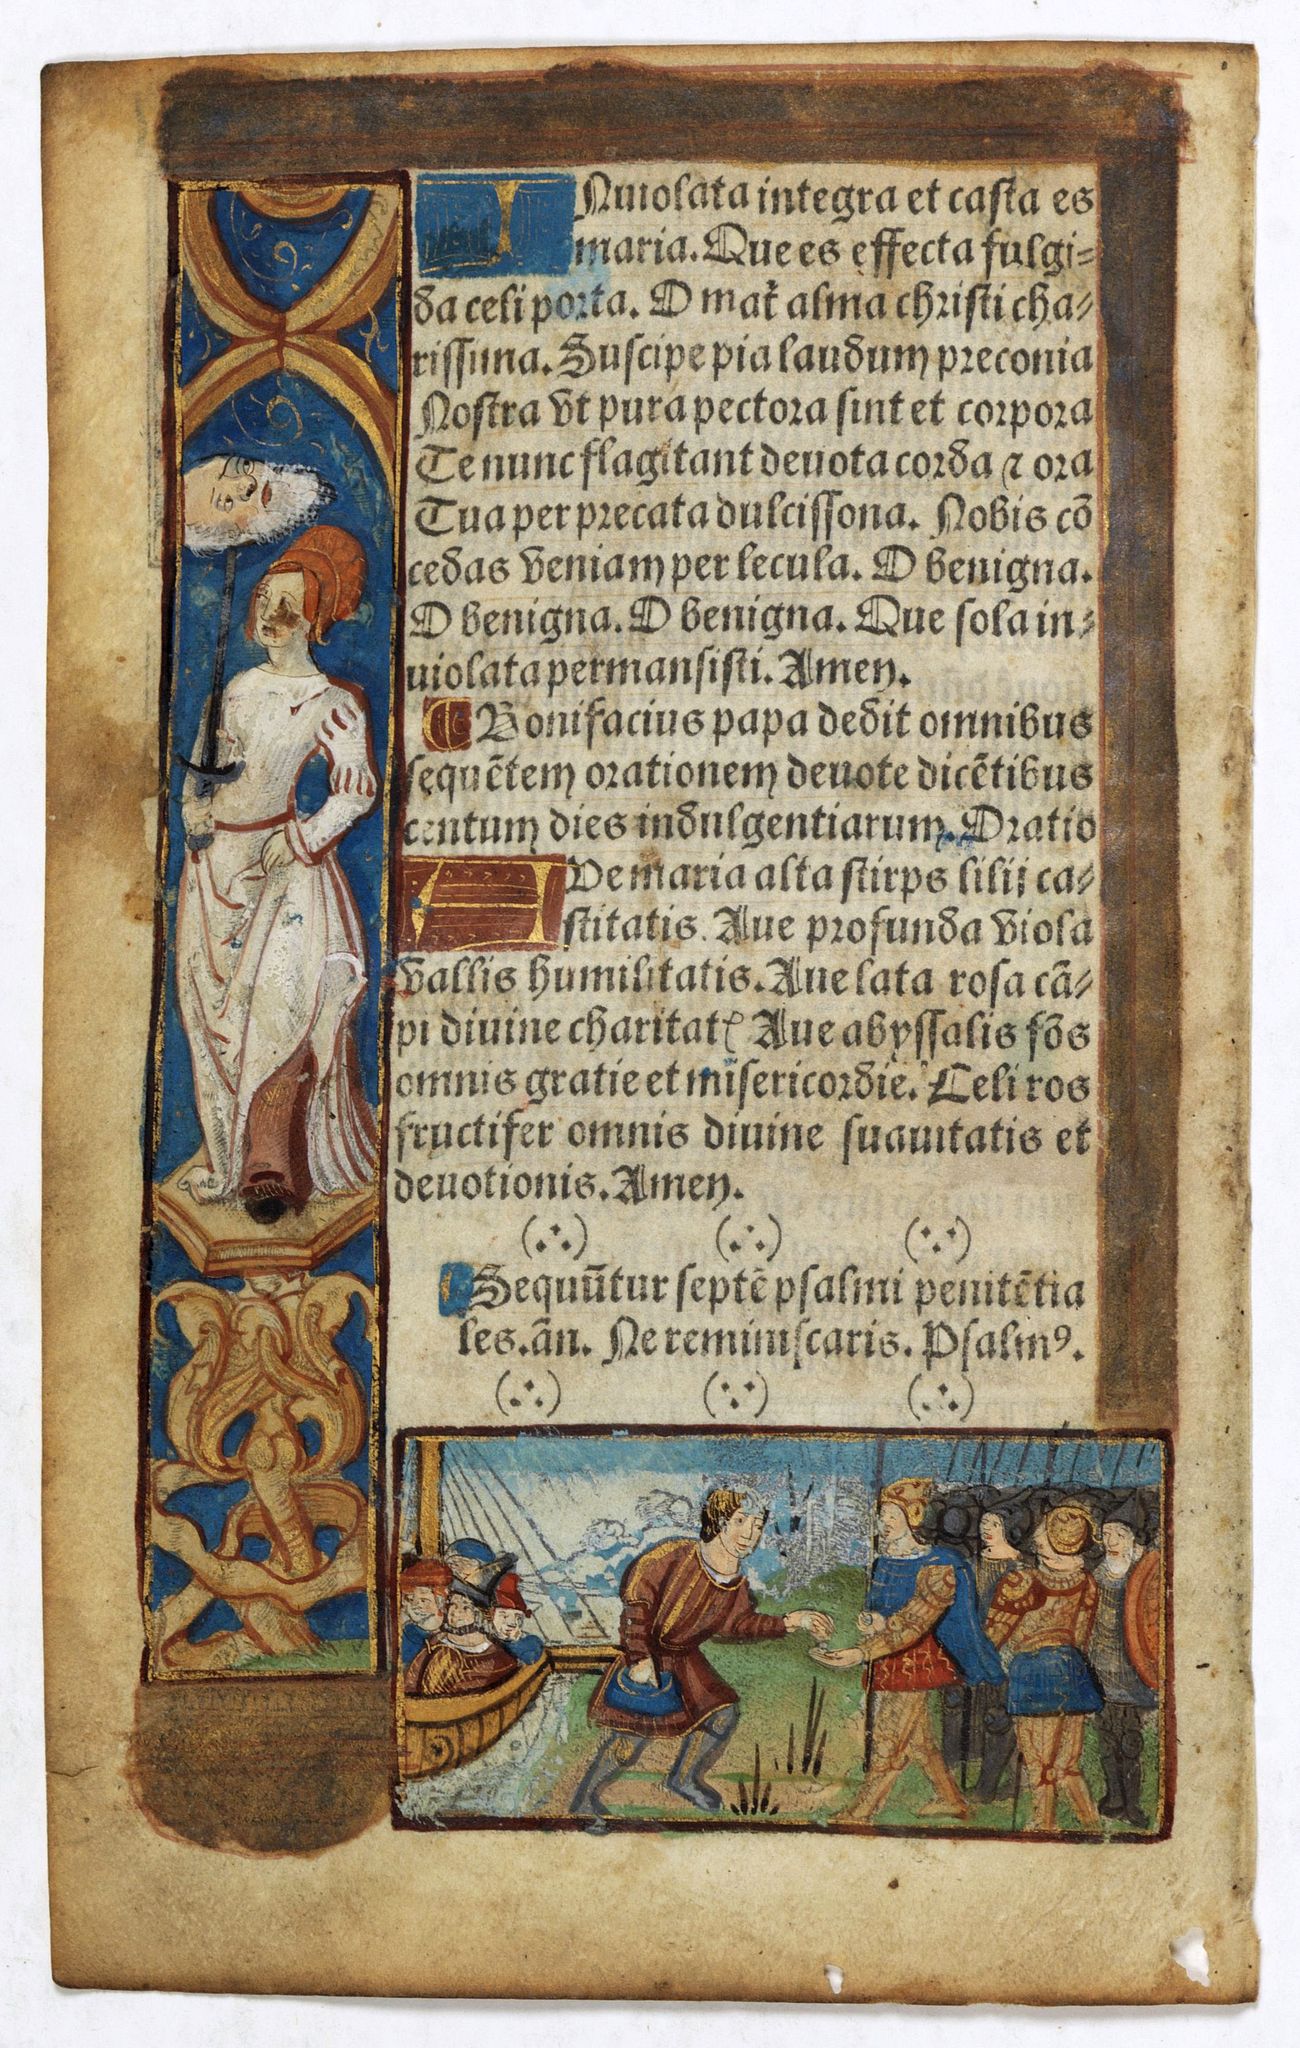 INuiolata integra et casta es
maria. Que es effecta fulgi-
da celi porta. O mat̄ alma christi cha-
rissima. Suscipe pia laudum preconia
Nostra vt pura pectora sint et corpora
Te nunc flagitant deuota corda ⁊ ora
Tua per precata dulcissona. Nobis cō
cedas veniam per secula. O benigna.
O benigna. O benigna. Que sola in-
uiolata permansisti. Amen.
Bonifacius papa dedit omnibus
sequētem orationem deuote dicētibus
centum dies indulgentiarum. Oratio
AUe maria alta stirps lilij ca-
stitatis. Aue profunda viola
vallis humilitatis. Aue lata rosa cā-
pi diuine charitatꝭ Aue abyssalis fōs
omnis gratie et misericordie. Celi ros
fructifer omnis diuine suauitatis et
deuotionis. Amen.
Sequūtur septē psalmi penitētia
les. ān. Ne reminiscaris. Psalmꝰ.